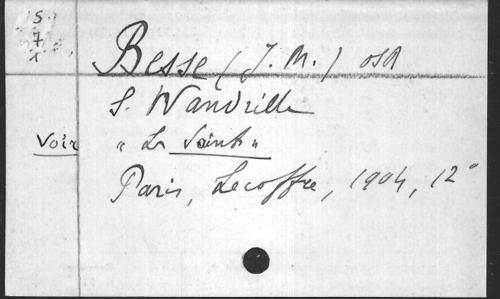 S
7
1
Besse (J. M.) OSB
S. Wandrille
Voir « Les Saints »
Paris, Lecoffre, 1904, 12°